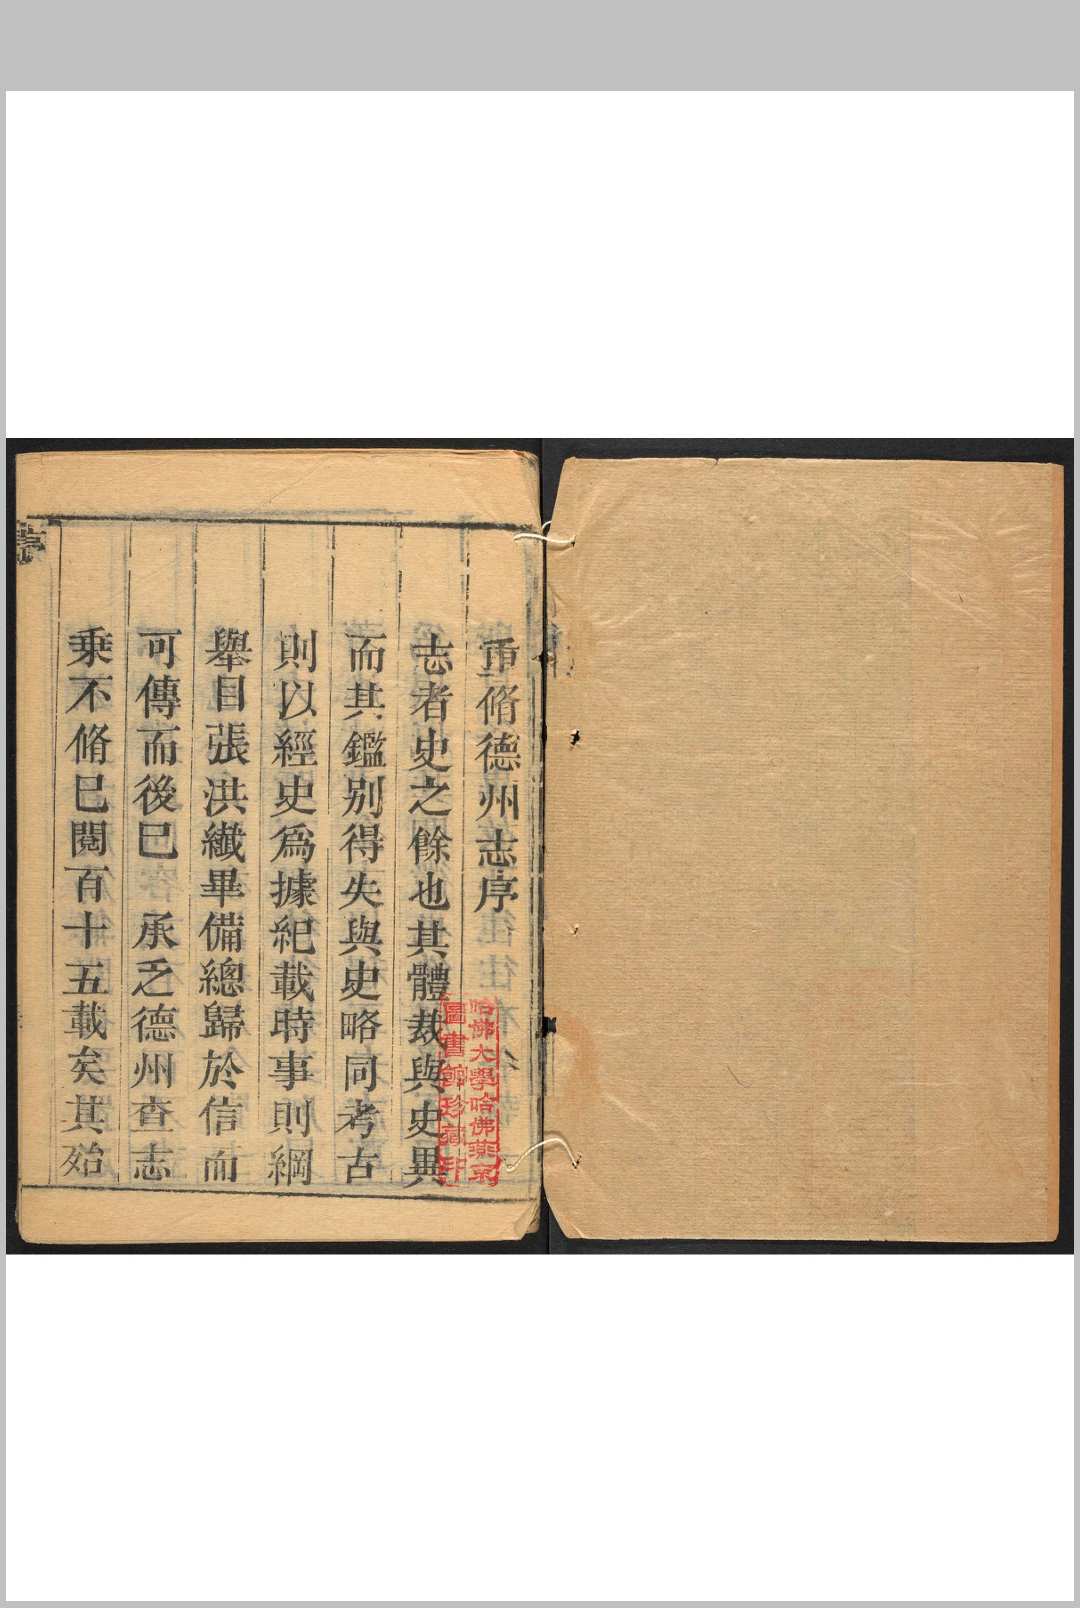 重脩德州志序
志者史之餘也其體裁與史異
而其鑑别得失與史略同考古
則以經史爲據紀載時事則綱
舉目張洪纖畢備總歸於信而
可傳而後巳　承乏德州查志
乗不脩巳閱百十五載矣其殆
哈佛大學哈佛燕京
圖書館珍藏印